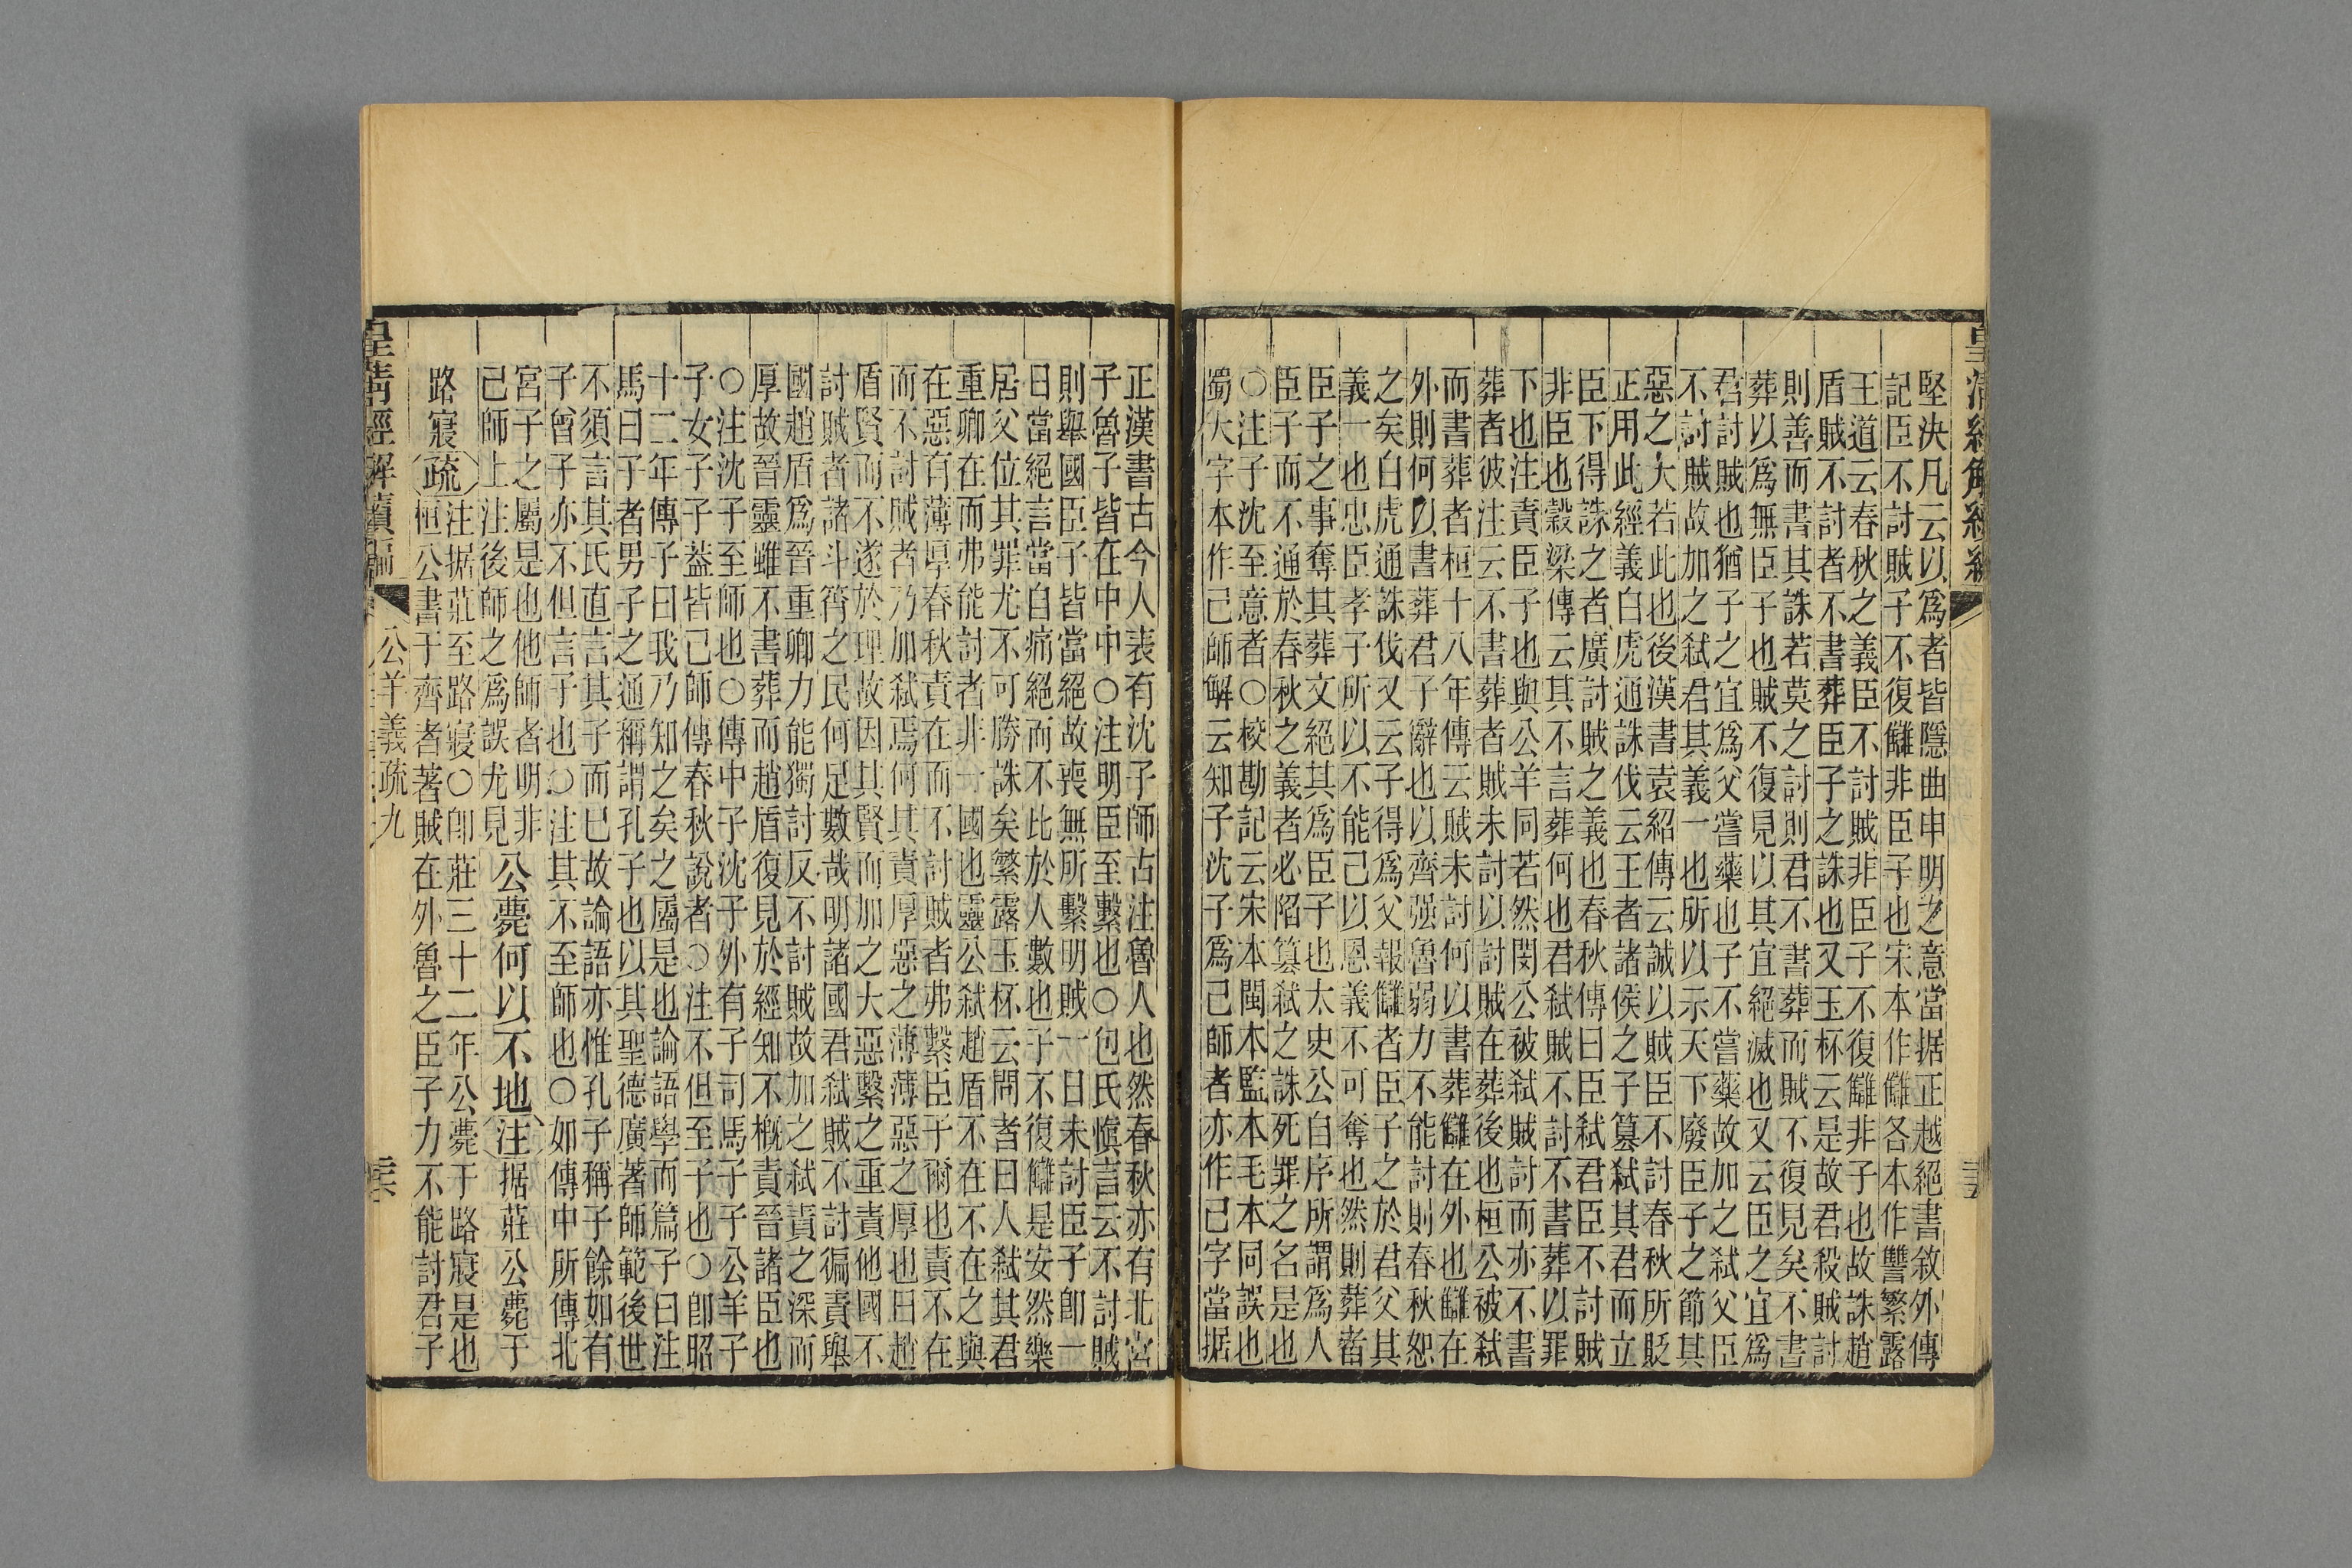 皇清經解續編
堅決凡云以爲者皆隱曲申明之意當据正越絕書敘外傳
記臣不討賊子不復讎非臣子也宋本作讎各本作讐繁露
王道云春秋之義臣不討賊非臣子不復讎非子也故誅趙
盾賊不討者不書葬臣子之誅也又玉杯云是故君殺賊討
則善而書其誅若莫之討則君不書葬而賊不復見矣不書
葬以爲無臣子也賊不復見以其宜絕滅也又云臣之宜爲
君討賊也猶子之宜爲父嘗藥也子不嘗藥故加之弑父臣
不討賊故加之弑君其義一也所以示天下廢臣子之節其
惡之大若此也後漢書袁紹傳云誠以賊臣不討春秋所貶
正用此經義白虎通誅伐云王者諸侯之子篡弑其君而立
臣下得誅之者廣討賊之義也春秋傳曰臣弑君臣不討賊
非臣也穀梁傳云其不言葬何也君弑賊不討不書葬以罪
下也注責臣子也與公羊同若然閔公被弑賊討而亦不書
葬者彼注云不書葬者賊未討以討賊在葬後也桓公被弑
而書葬者桓十八年傳云賊未討何以書葬讎在外也讎在
外則何以書葬君子辭也以齊强魯弱力不能討則春秋恕
之矣白虎通誅伐又云子得爲父報讎者臣子之於君父其
義一也忠臣孝子所以不能已以恩義不可奪也然則葬者
臣子之事奪其葬文絕其爲臣子也太史公自序所謂爲人
臣子而不通於春秋之義者必陷篡弑之誅死罪之名是也
○注子沈至意者○校勘記云宋本閩本監本毛本同誤也
蜀大字本作己師解云知子沈子爲己師者亦作己字當据
正漢書古今人表有沈子師古注魯人也然春秋亦有北宮
子魯子皆在中中○注明臣至繫也○包氏愼言云不討賊
則舉國臣子皆當絕故喪無所繫明賊一日未討臣子卽一
日當絕言當自痛絕而不比於人數也子不復讎是安然樂
居父位其罪尤不可勝誅矣繁露玉杯云問者曰人弑其君
重卿在而弗能討者非一國也靈公弑趙盾不在不在之與
在惡有薄厚春秋責在而不討賊者弗繫臣子爾也責不在
而不討賊者乃加弑焉何其責厚惡之薄薄惡之厚也曰趙
盾賢而不遂於理故因其賢而加之大惡繫之重責他國不
討賊者諸斗筲之民何足數哉明諸國君弑賊不討徧責舉
國趙盾爲晉重卿力能獨討反不討賊故加之弑責之深而
厚故晉靈雖不書葬而趙盾復見於經知不槪責晉諸臣也
○注沈子至師也○傳中子沈子外有子司馬子子公羊子
子女子子蓋皆己師傳春秋說者○注不但至子也○卽昭
十二年傳子曰我乃知之矣之屬是也論語學而篇子曰注
馬曰子者男子之通稱謂孔子也以其聖德廣著師範後世
不須言其氏直言其子而已故論語亦惟孔子稱子餘如有
子曾子亦不但言子也○注其不至師也○如傳中所傳北
宮子之屬是也他師者明非
己師上注後師之爲誤尤見 公薨何以不地(注)据莊公薨于
路寢(疏)注据莊至路寢○卽莊三十二年公薨于路寢是也
桓公書于齊者著賊在外魯之臣子力不能討君子
皇清經解續編
公羊義疏九